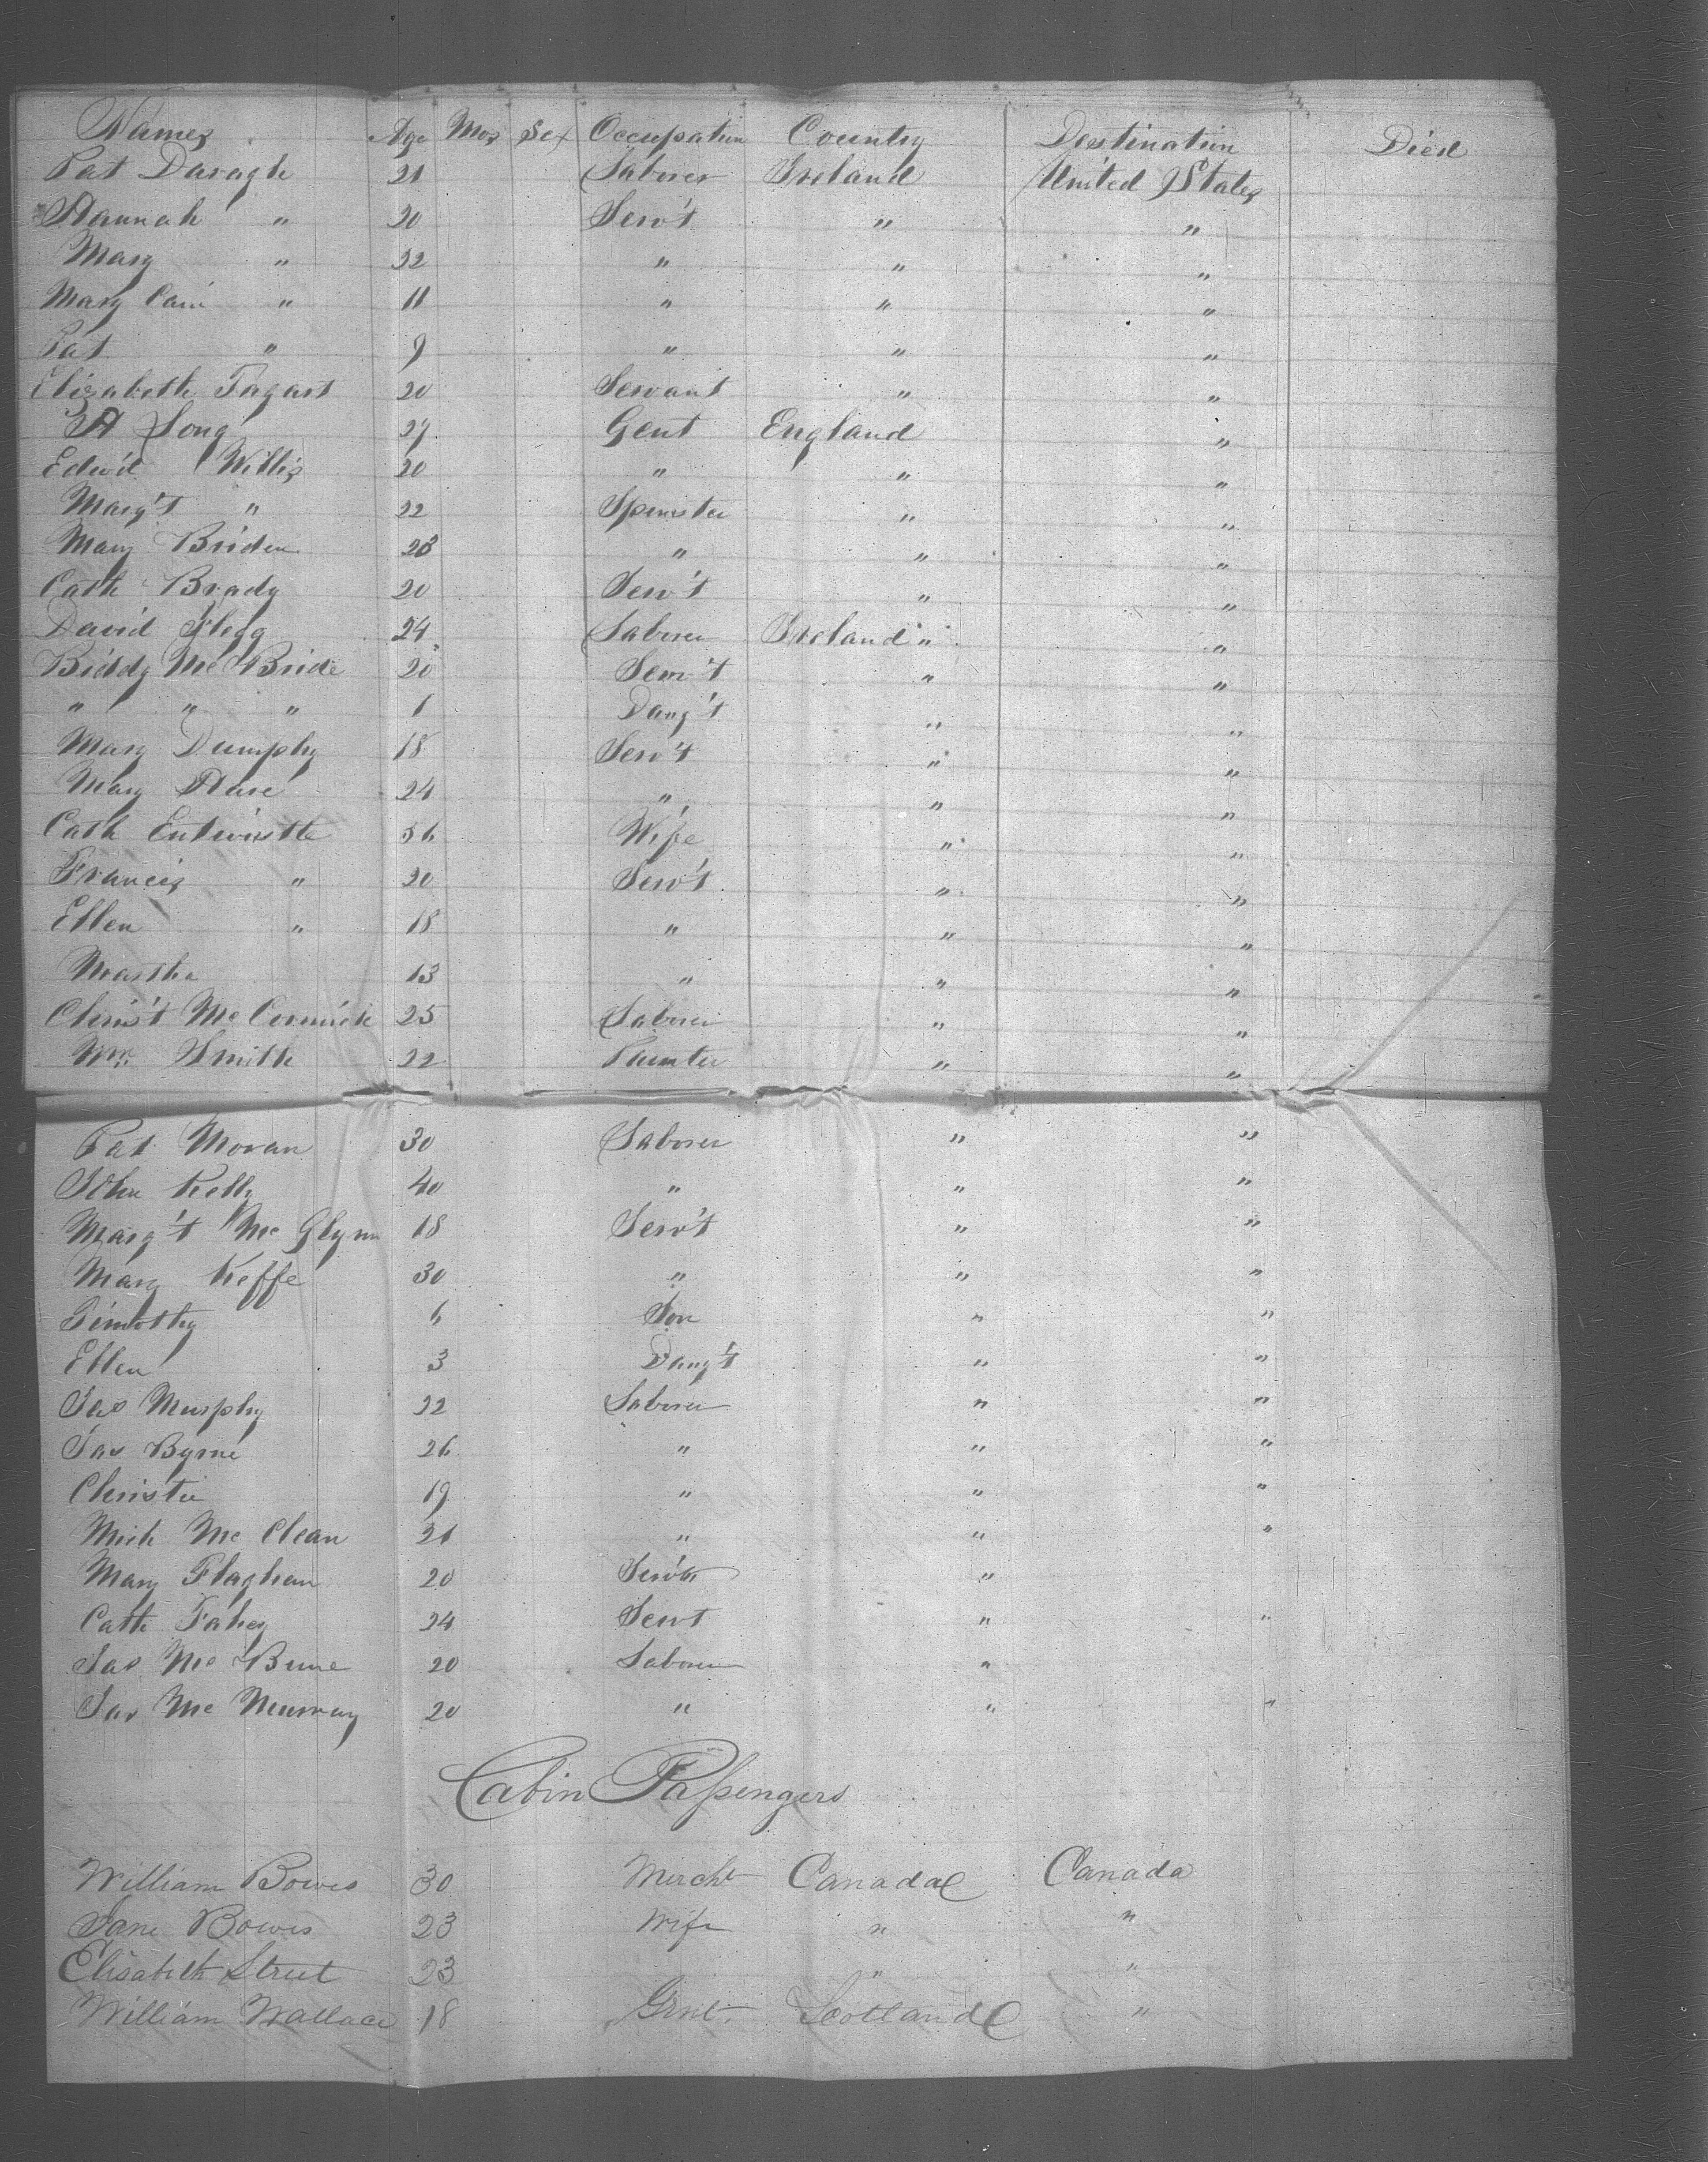 Names Age Mos Sex Occupation Country Destination Died
Pat Daragh 21 Laborer Ireland United States
Hannah " 20 Serv't " "
Mary " 22 " " "
Mary " 11 " " "
Pat " 9 " " "
Elizabeth Tagart 20 Servant " "
H Long 29 Gent England "
Edw'd Willis 20 " " "
Marg't " 22 Spinster " "
Mary Briden 23 " " "
Cath Brady 20 Serv't " "
David Flegg 24 Laborer Ireland " "
Biddy McBride 20 Serv't " "
" " " 1 Daug't " "
Mary Dumphy 18 Serv't " "
Mary Hare 24 " " "
Cath Entwistle 56 Wife " "
Francis " 20 Serv't " "
Ellen " 18 " " "
Martha 13 " " "
Chris't McCormick 25 Laborer " "
Wm Smith 22 Painter " "
Pat Moran 30 Laborer " "
John Kelly 40 " " "
Marg't McGlynn 18 Serv't " "
Mary Keffe 30 " " "
Timothy 6 Son " "
Ellen 3 Daug't " "
Jas Murphy 22 Laborer " "
Jas Byrne 26 " " "
Christie 19 " " "
Mich McClean 21 " " "
Mary Flaghan 20 "
Cath Fahey 24 Servt " "
Jas Mc 20 Laborer "
Jas McMurray 20 " " "
Cabin Passengers
William Bowes 30 Mercht Canada Canada
Jane Bowes 23 Wife " "
Elisabeth Street 23 " "
William Wallace 18 Gent. Scotland "